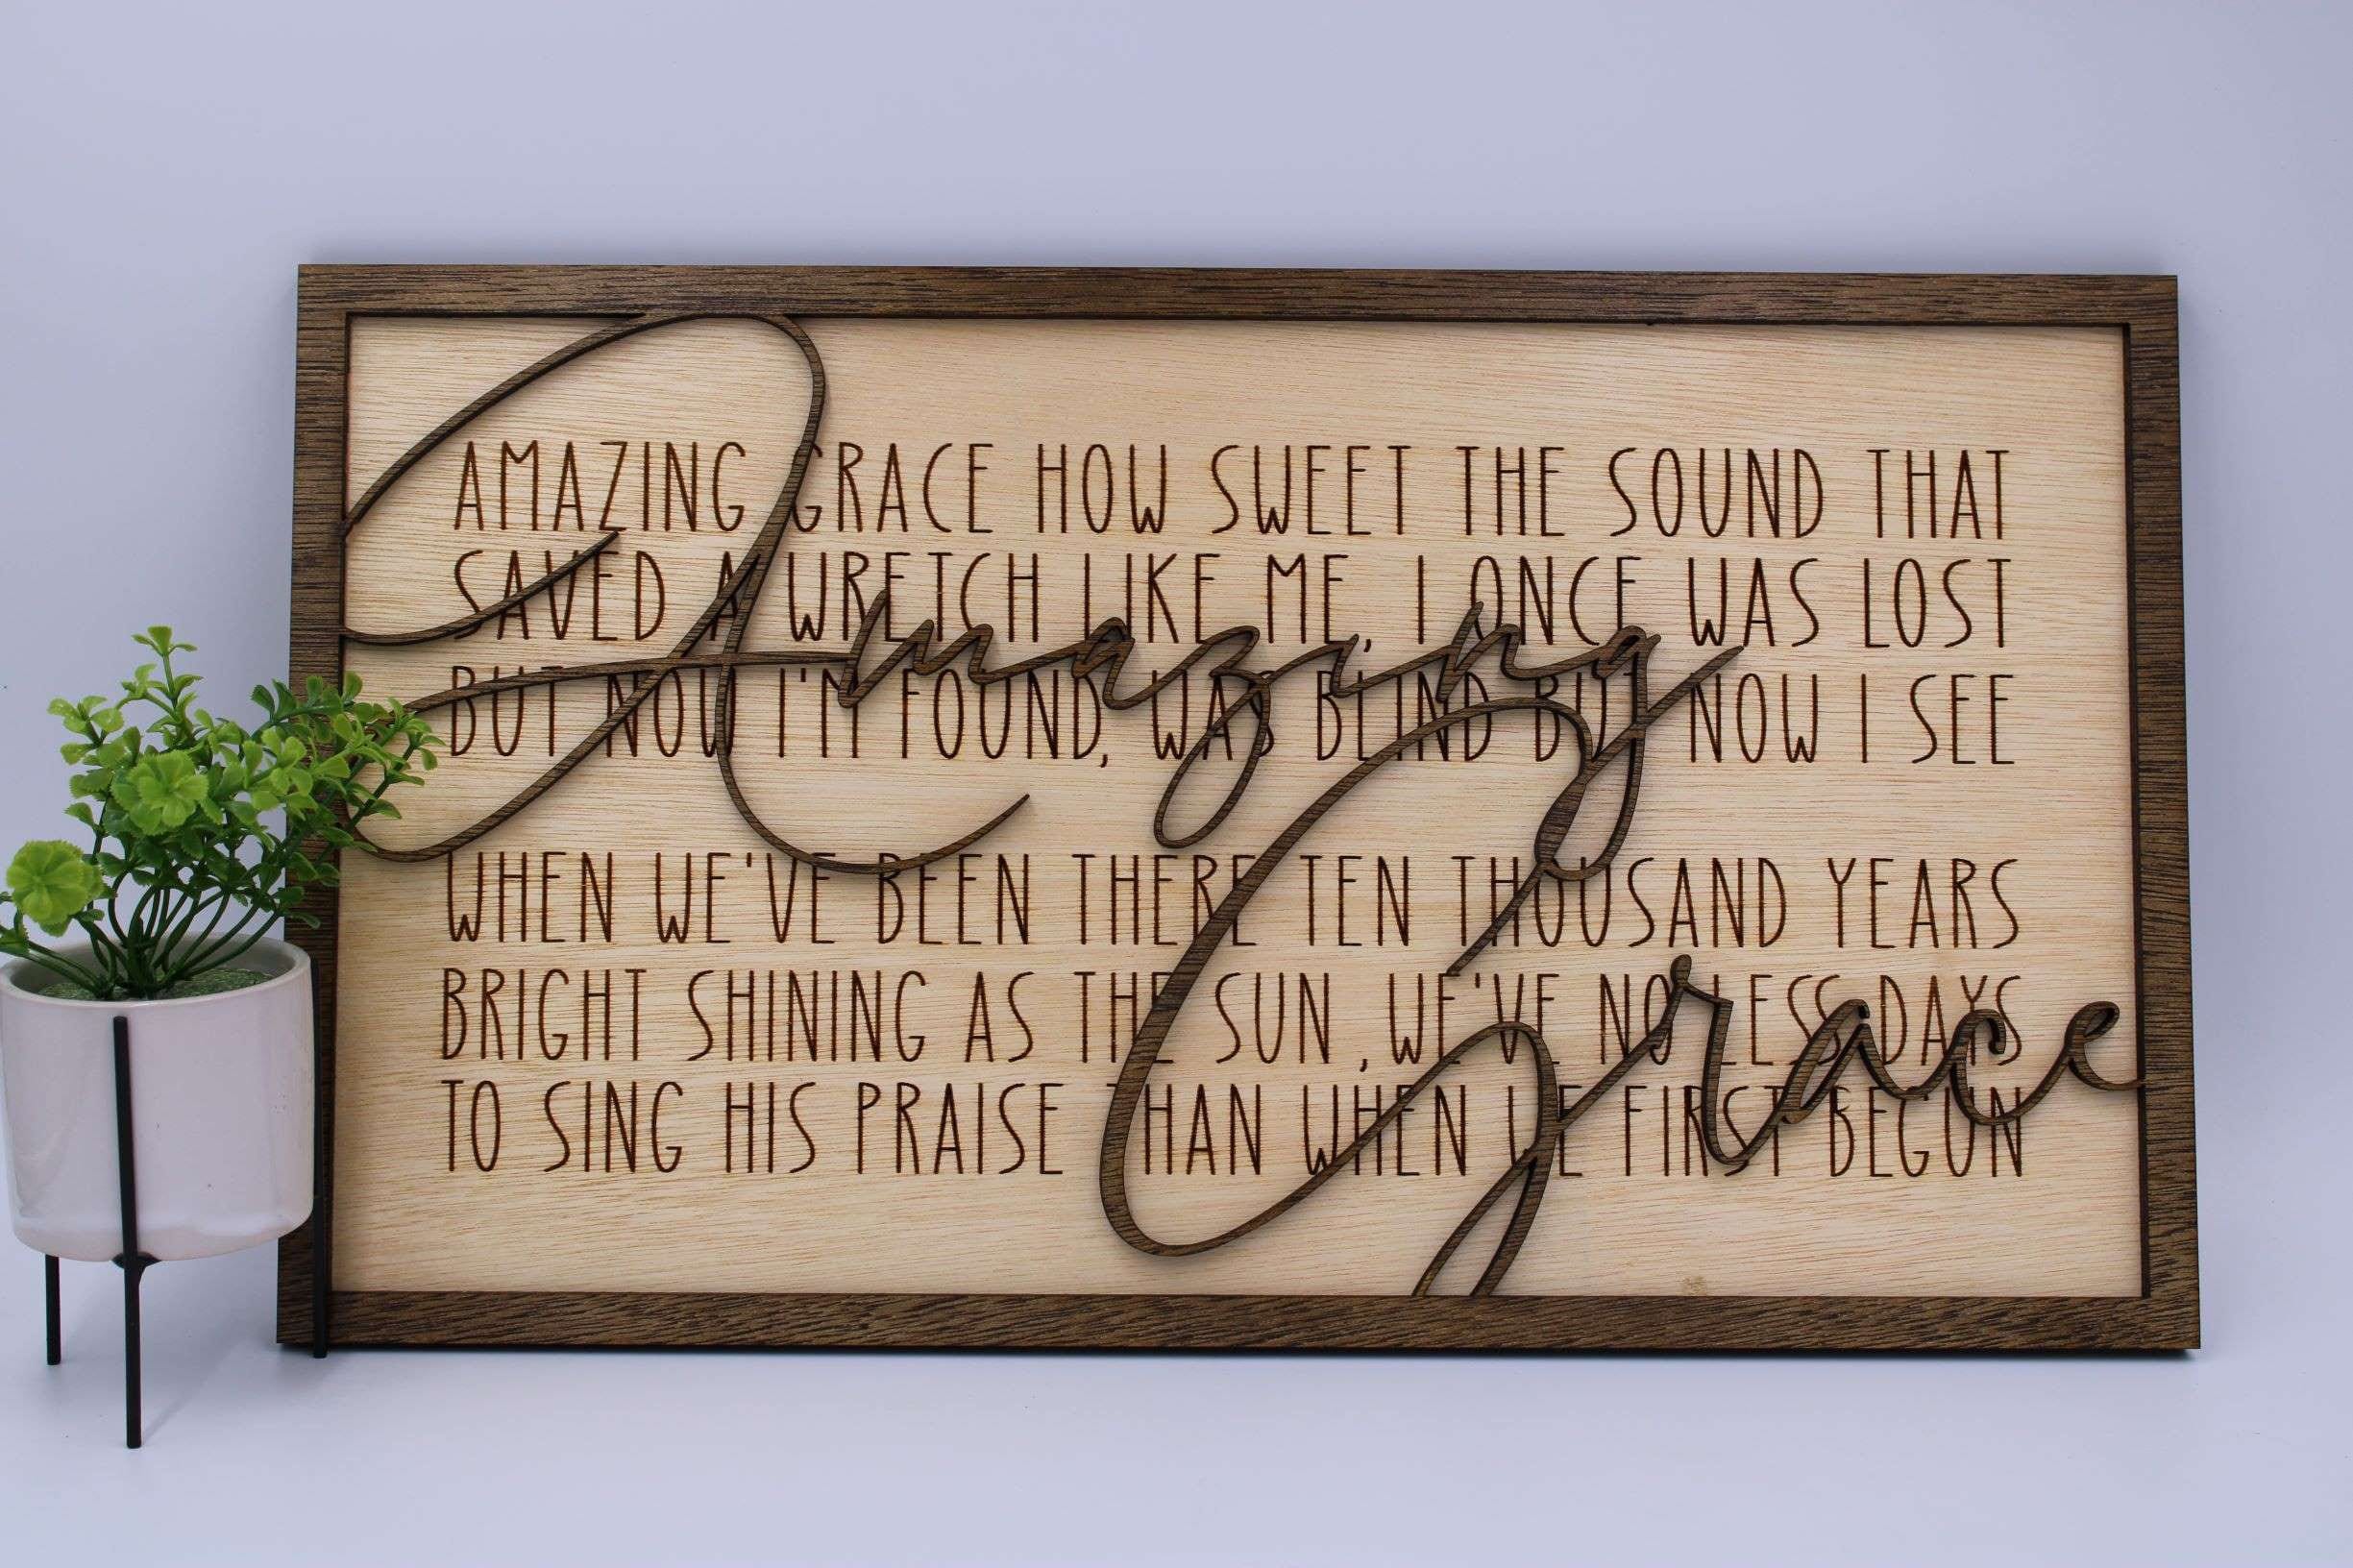 AMAZING GRACE HOW SWEET THE SOUND THAT
SAVED A WRETCH LIKE ME, I ONCE WAS LOST
BUT NOW I'M FOUND, WAS BLIND BUT NOW I SEE
WHEN WE'VE BEEN THERE TEN THOUSAND YEARS
BRIGHT SHINING AS THE SUN ,WE'VE NO LESS DAYS
TO SING HIS PRAISE THAN WHEN WE FIRST BEGUN
Amazing
Grace